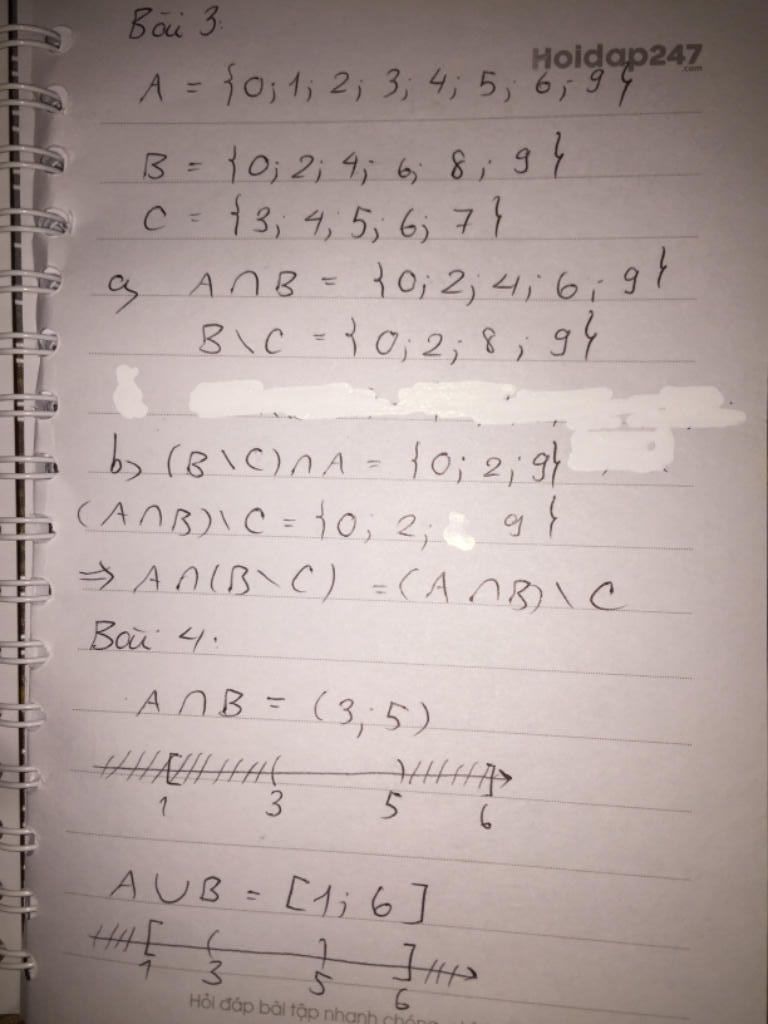 Bài 3:
Hoidap247
.com
A = {0; 1; 2; 3; 4; 5; 6; 9}
B = {0; 2; 4; 6; 8; 9}
C = {3; 4; 5; 6; 7}
a, A∩B = {0; 2; 4; 6; 9}
B\C = {0; 2; 8; 9}
b, (B\C)∩A = {0; 2; 9}
(A∩B)\C = {0; 2; 9}
⇒ A∩(B\C) = (A∩B)\C
Bài 4.
A∩B = (3; 5)
[ ( ) ]
1 3 5 6
A∪B = [1; 6]
[ ( ) ]
1 3 5 6
Hỏi đáp bài tập nhanh chóng